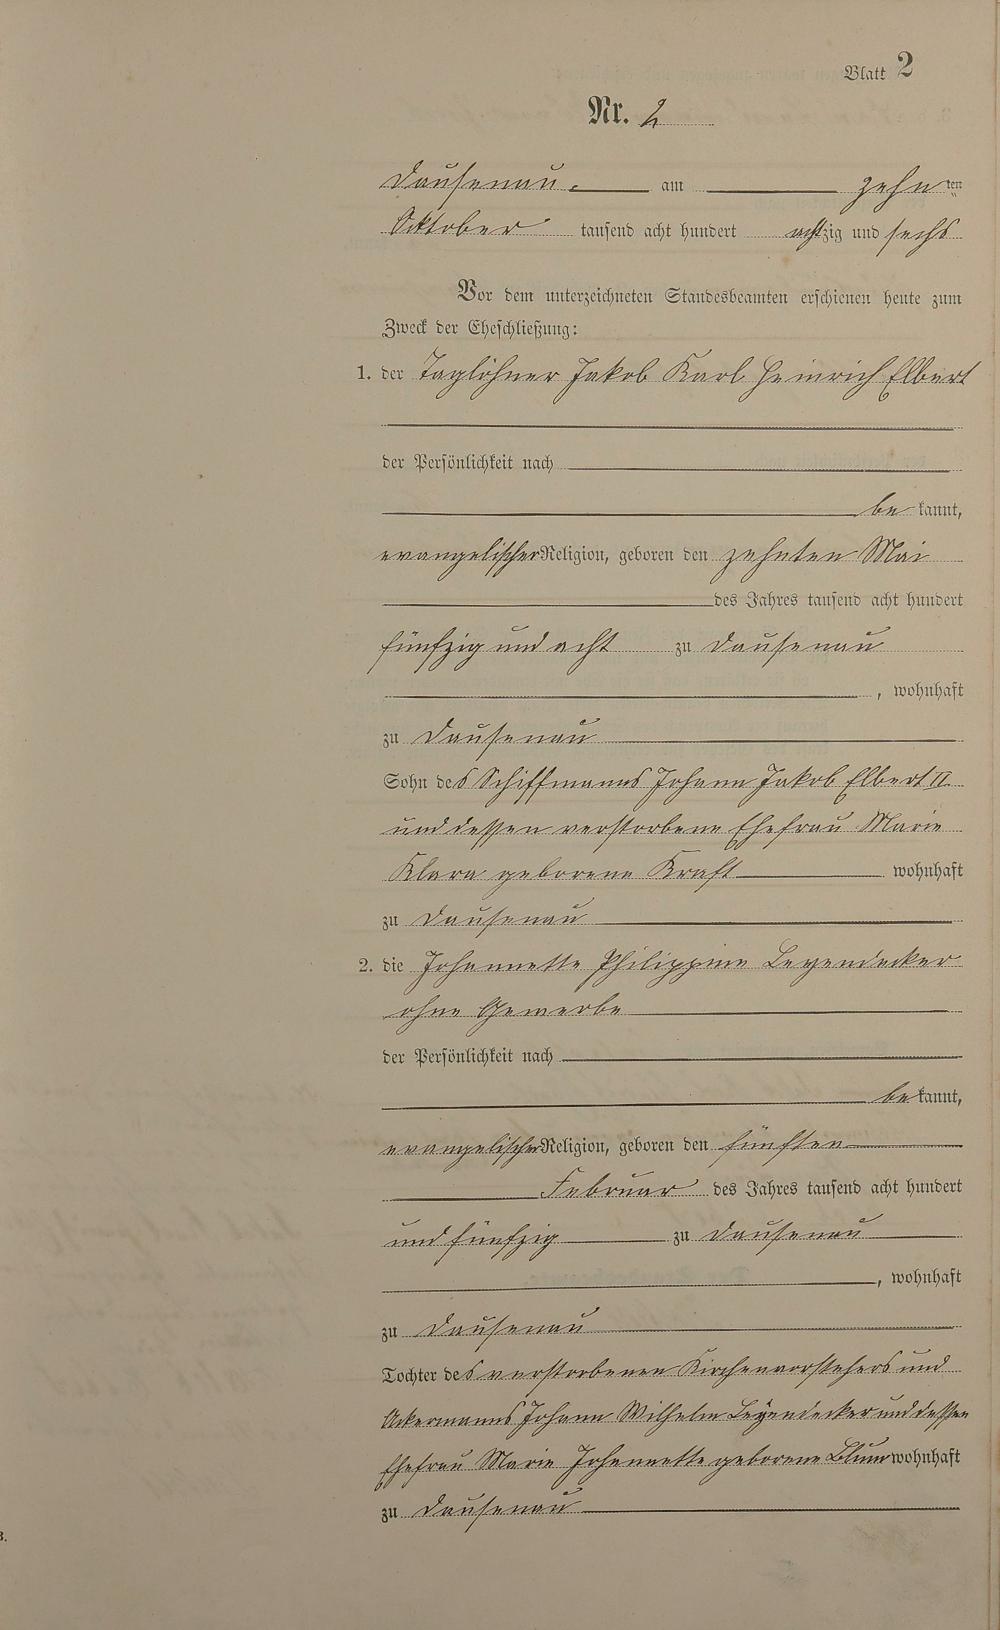 Blatt 2
Nr. 2
Dausenau. am zehnten
Oktober tausend acht hundert achtzig und sechs
Vor dem unterzeichneten Standesbeamten erschienen heute zum
Zweck der Eheschließung:
1. der Taglöhner Jakob Karl Heinrich Elbert
der Persönlichkeit nach
be kannt,
evangelischer Religion, geboren den zehnten Mai
des Jahres tausend acht hundert
fünfzig und acht zu Dausenau
, wohnhaft
zu Dausenau
Sohn des Schiffmanns Johann Jakob Elbert II
und dessen verstorbene Ehefrau Marie
Klara geborene Kraft wohnhaft
zu Dausenau
2. die Johannette Philippine Leyendecker
ohne Gewerbe
der Persönlichkeit nach
be kannt,
evangelischer Religion, geboren den fünften
Februar des Jahres tausend acht hundert
und fünfzig zu Dausenau
, wohnhaft
zu Dausenau
Tochter des verstorbenen Kirchenvorstehers und
Ackermanns Johann Wilhelm Leÿendecker und dessen
Ehefrau Marie Johannette geborene Blum wohnhaft
zu Dausenau